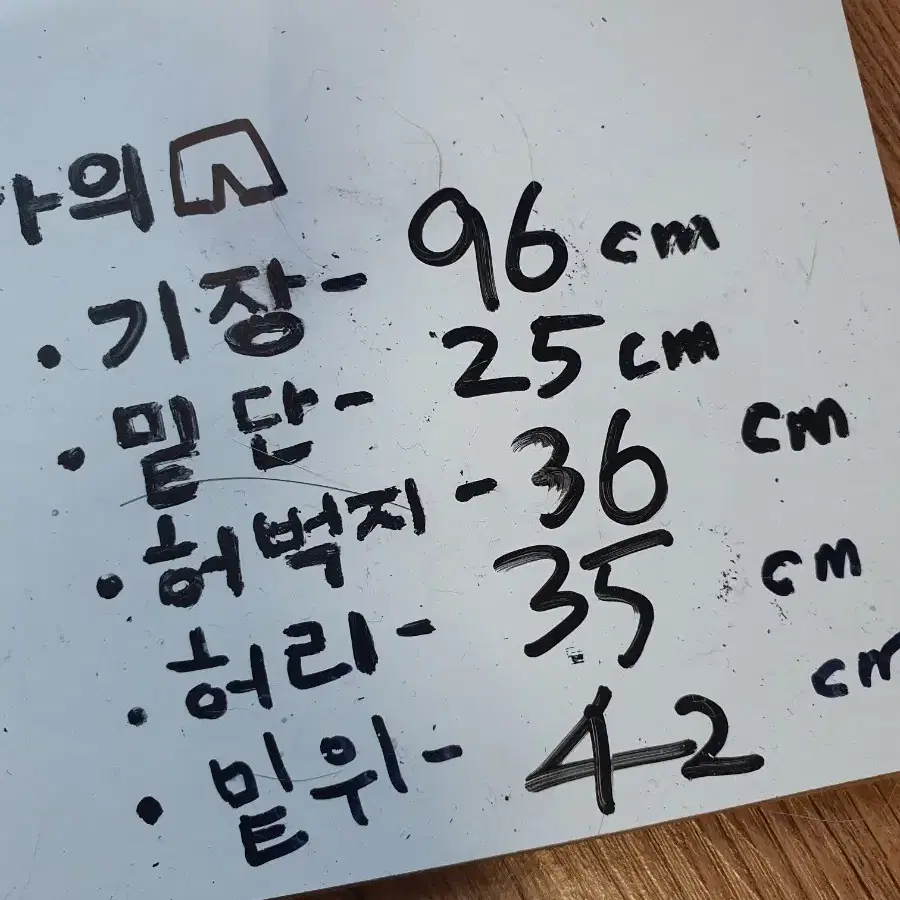 의
· 기장 - 96 cm
· 밑단 - 25 cm
· 허벅지 - 36 cm
· 허리 - 35 cm
· 밑위 - 42 cm